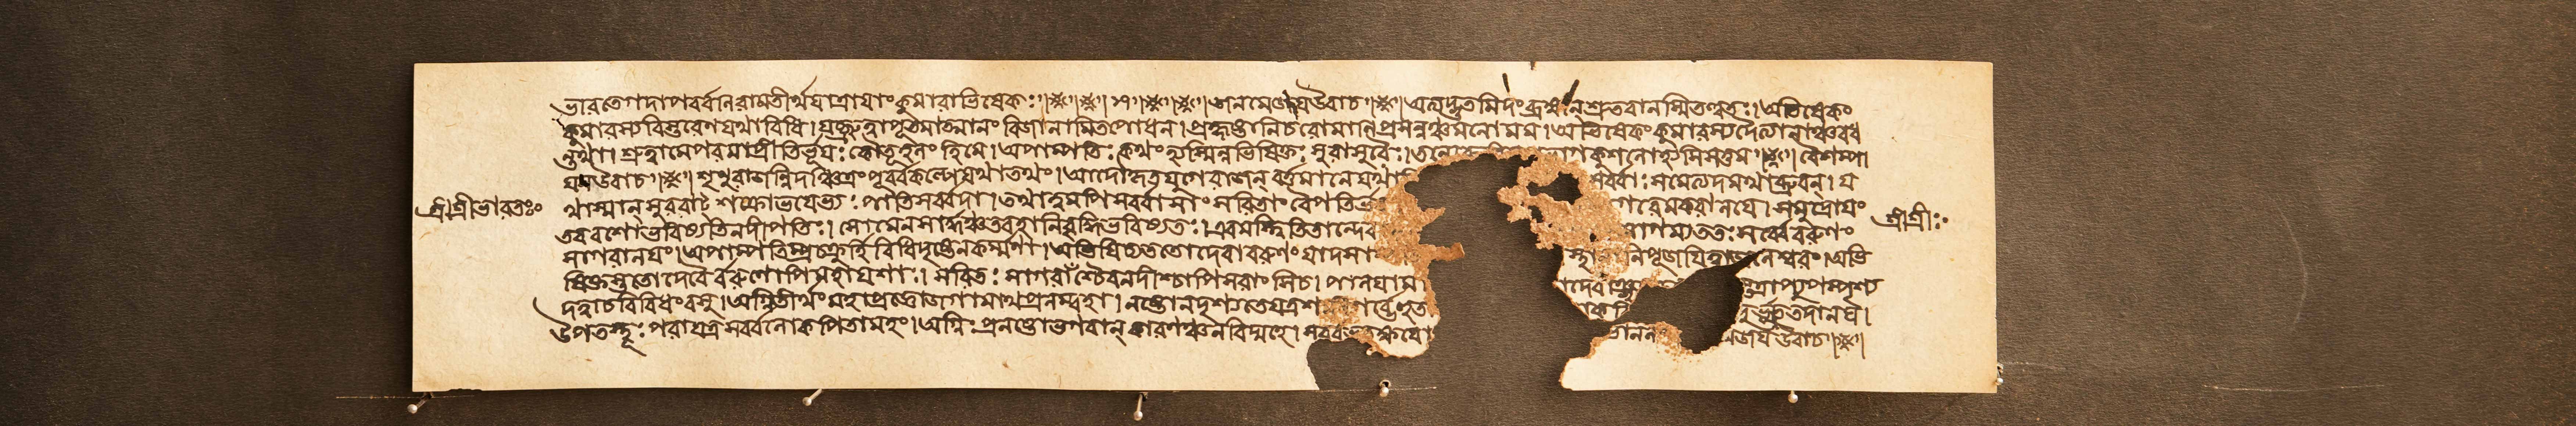 ভারতেগদাপর্ব্বনিরামতীর্থযাত্রাযাংকুমারাভিষেকঃ।।※।।※।।※।।※।।জনমেজয়উবাচ।※।অত্যদ্ভুতমিদংব্রহ্মন্শ্রুতবানস্মিতত্ত্বতঃ।অভিষেকং
কুমারস্যবিস্তরেণযথাবিধি।যচ্ছ্রুত্বাপূতমাত্মানংবিজানামিতপোধন।প্রহৃষ্টানিচরোমাণিপ্রসন্নঞ্চমনোমম।অভিষেকংকুমারস্যদৈত্যানাঞ্চবধ
ন্তথা।শ্রুত্বামেপরমাপ্রীতির্ভূযঃকৌতূহলংহিমে।অপাম্পতিঃকথংহ্যস্মিন্নভিষিক্তঃসুরাসুরৈঃ।কুশলোহ্যসিসত্তম।※।বৈশম্পা
যনউবাচ।※।শৃণুরাজন্নিদঞ্চিত্রংপূর্ব্বকল্পেযথাতথং।আদৌকৃতযুগেরাজন্বর্ত্তমানেযথাবি সর্ব্বাঃসমেত্যেদমথাব্রুবন্।য
শ্রীশ্রীভারতঃ থাস্মান্সুররাট্শক্রোভযেভ্যঃপাতিসর্ব্বদা।তথাত্বমপিসর্ব্বাসাংসরিতাংবৈপতির্ভ গরেমকরালযে।সমুদ্রোযং শ্রীশ্রীঃ
তববশোভবিষ্যতিনদীপতিঃ।সোমেনসার্দ্ধঞ্চতবহানিবৃদ্ধিভবিষ্যতঃ।এবমস্ত্বিতিতান্দেবা মাগম্যততঃসর্ব্বেবরুণং
সাগরালযং।অপাম্পতিম্প্রচক্রুর্হিবিধিদৃষ্টেনকর্ম্মণা।অভিষিচ্যততোদেবাবরুণংযাদসা স্থানানিপূজযিত্বাজলেশ্বরং।অভি
ষিক্তস্ততোদেবৈর্বরুণোপিমহাযশাঃ।সরিতঃসাগরাঁশ্চৈবনদীশ্চাপিসরাংসিচ।পালযামা দেবাঞ্ছ ত্রাপ্যুপস্পৃশ্য
দত্বাচবিবিধংবসু।অগ্নিতীর্থংমহাপ্রাজ্ঞোজগামাথপ্রলম্বহা।নষ্টোনদৃশ্যতেযত্রশমীগর্ভেহুত কবি দুর্ভূতেতদানঘ।
উপতস্থূঃপরাযত্রসর্ব্বলোকপিতামহং।অগ্নিঃপ্রনষ্টোভগবান্কারণঞ্চনবিদ্মহে।সর্ব্বভূতক্ষযো তানল জযউবাচ।※।